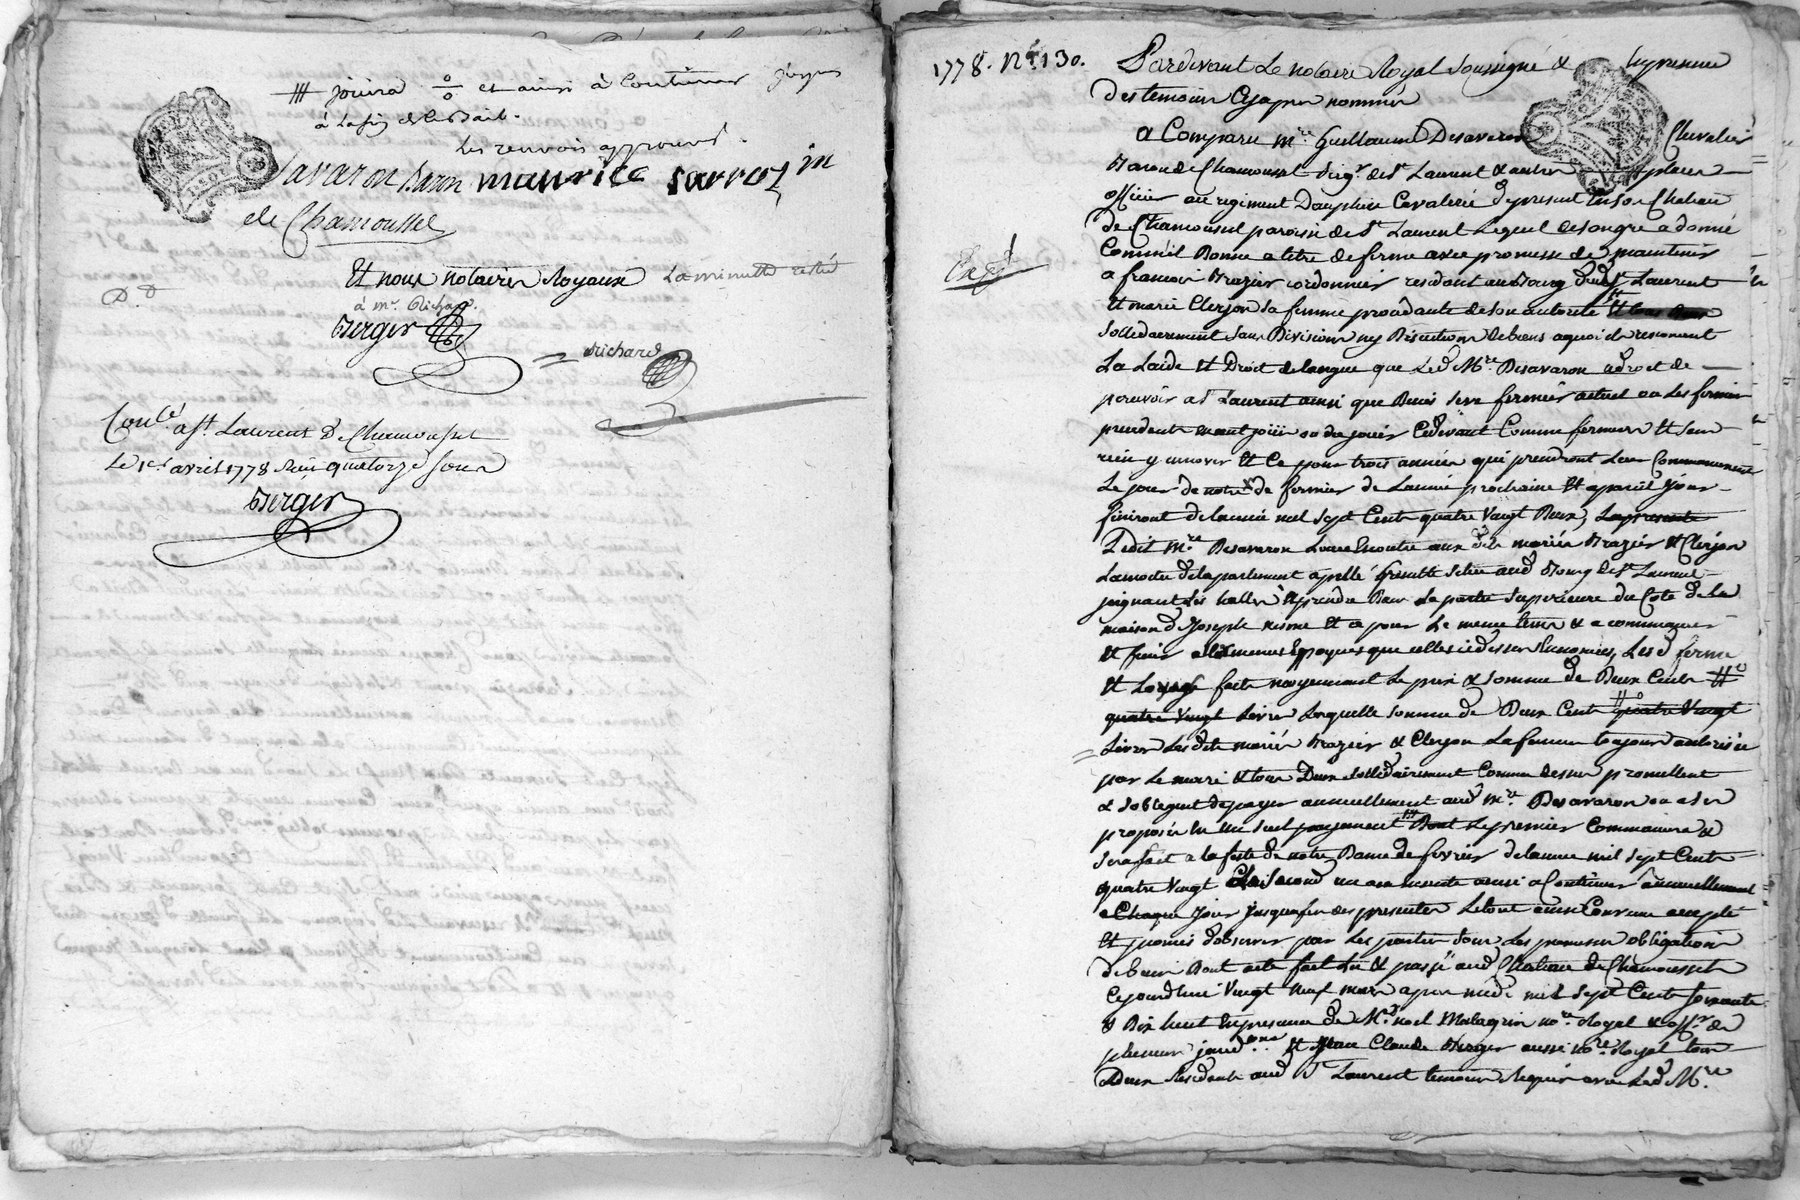 jouira et ainsi à Continuer jusques
à la fin de ce Bail.
les renvois approuvés.
Savaron Baron maurice sarrazin
de Chamousset
Et nous notaires Royaux La minutte restée
à me Richard.
Berger
Richard
Conlé a st. Laurent De Chamousset
Le 1er avril 1778 Reçu quatorze sous
Berger
1778. No. 130.
Pardevant Le notaire Royal soussigné & En presence
des temoins Cy apres nommés
a Comparu mre Guillaume Desavaron Chevalier
Baron de Chamousset seigr. de st Laurent & autres places
officier au regiment Dauphin Cavalerie de present en son Chateau
de Chamousset paroisse de st Laurent Lequel de son gré a donné
Comme il Donne a titre de ferme avec promesse de maintenir
a francois Brazier cordonnier residant au Bourg dud st Laurent
Et marie Clerjon sa femme procedante de son autorité
sollidairement sans Division ny Discution de biens a quoi ils renoncent
La Laide Et Droit de langue que Led. Mre Desavaron a droit de
percevoir a st Laurent ainsi que fermier actuel ou Les fermiers
precedents en ont joui ou du jouir Cydevant Comme fermiers Et sans
rien y innover Et Ce pour trois années qui prendront Leur Commencement
Le jour de notre De de fevrier de L'année prochaine Et a pareil jour
finiront de l'année mil sept Cent quatre Vingt Deux, La presente
Ledit Mre Desavaron Loue En outre aux dits mariés Brazier Et Clerjon
apellé Grenette Situé aud Bourg de st Laurent
joignant Les halles a prendre Dans La partie superieure du Coté de la
maison de Joseph Et ce pour Le meme tems & a commencer
Et finir a memes Epoques que celles ci dessus Enoncées, Lesd ferme
Et Louage faits moyennant Le prix & somme de Deux Cents
quatre Vingt Livres Laquelle somme de Deux Cents quatre Vingt
Livres Lesdits mariés Brazier & Clerjon La femme toujours autorisée
par Le mari & tous Deux sollidairement Comme dessus promettent
& s'obligent de payer annuellement aud. mre Desavaron ou a ses
proposés En un seul payement Dont Le premier Commencera &
sera fait a la feste de notre Dame de fevrier de l'année mil sept Cents
quatre Vingt Le second un an ensuite ainsi a Continuer annuellement
a Chaque jour jusqu'a fin des presentes Le tout ainsi Convenu accepté
Et promis d'observer par Les parties sous Les promesses obligations
de biens Dont acte fait Lu & passé aud Chateau de Chamousset
Cejourd'hui Vingt Neuf mars apres midi mil sept Cents soixante
& Dix huit En presence de Me. noel Malagrin nore. Royal & offr. de
plusieurs jurid.ons Et Jean Claude Berger aussi nore. Royal tous
Deux Residants aud st Laurent temoins Requis avec Led Mre